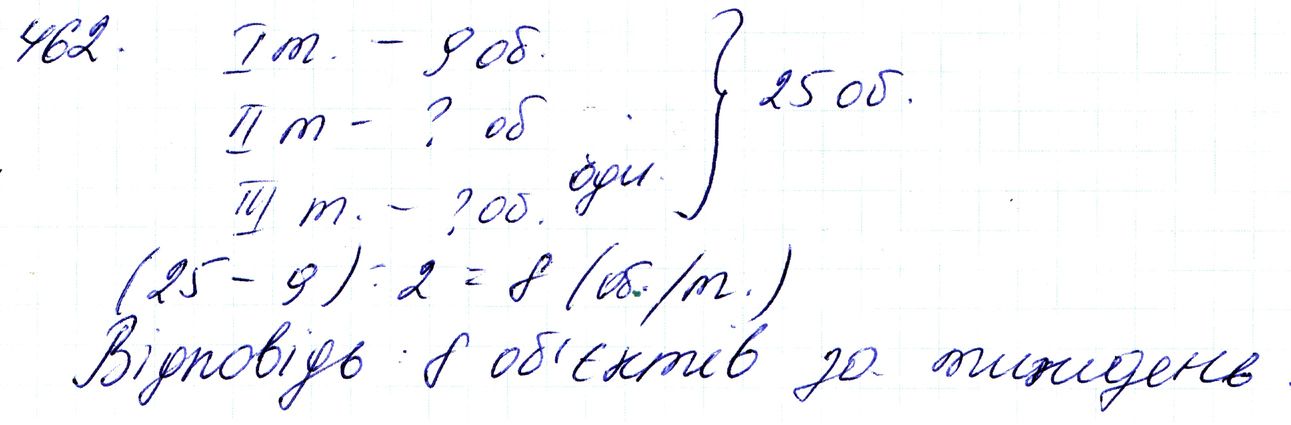 462. I т. - 9 об.
II т - ? об
III т. - ? об. одн.
} 25 об.
(25 - 9) : 2 = 8 (об./т.)
Відповідь : 8 об'єктів за тиждень.